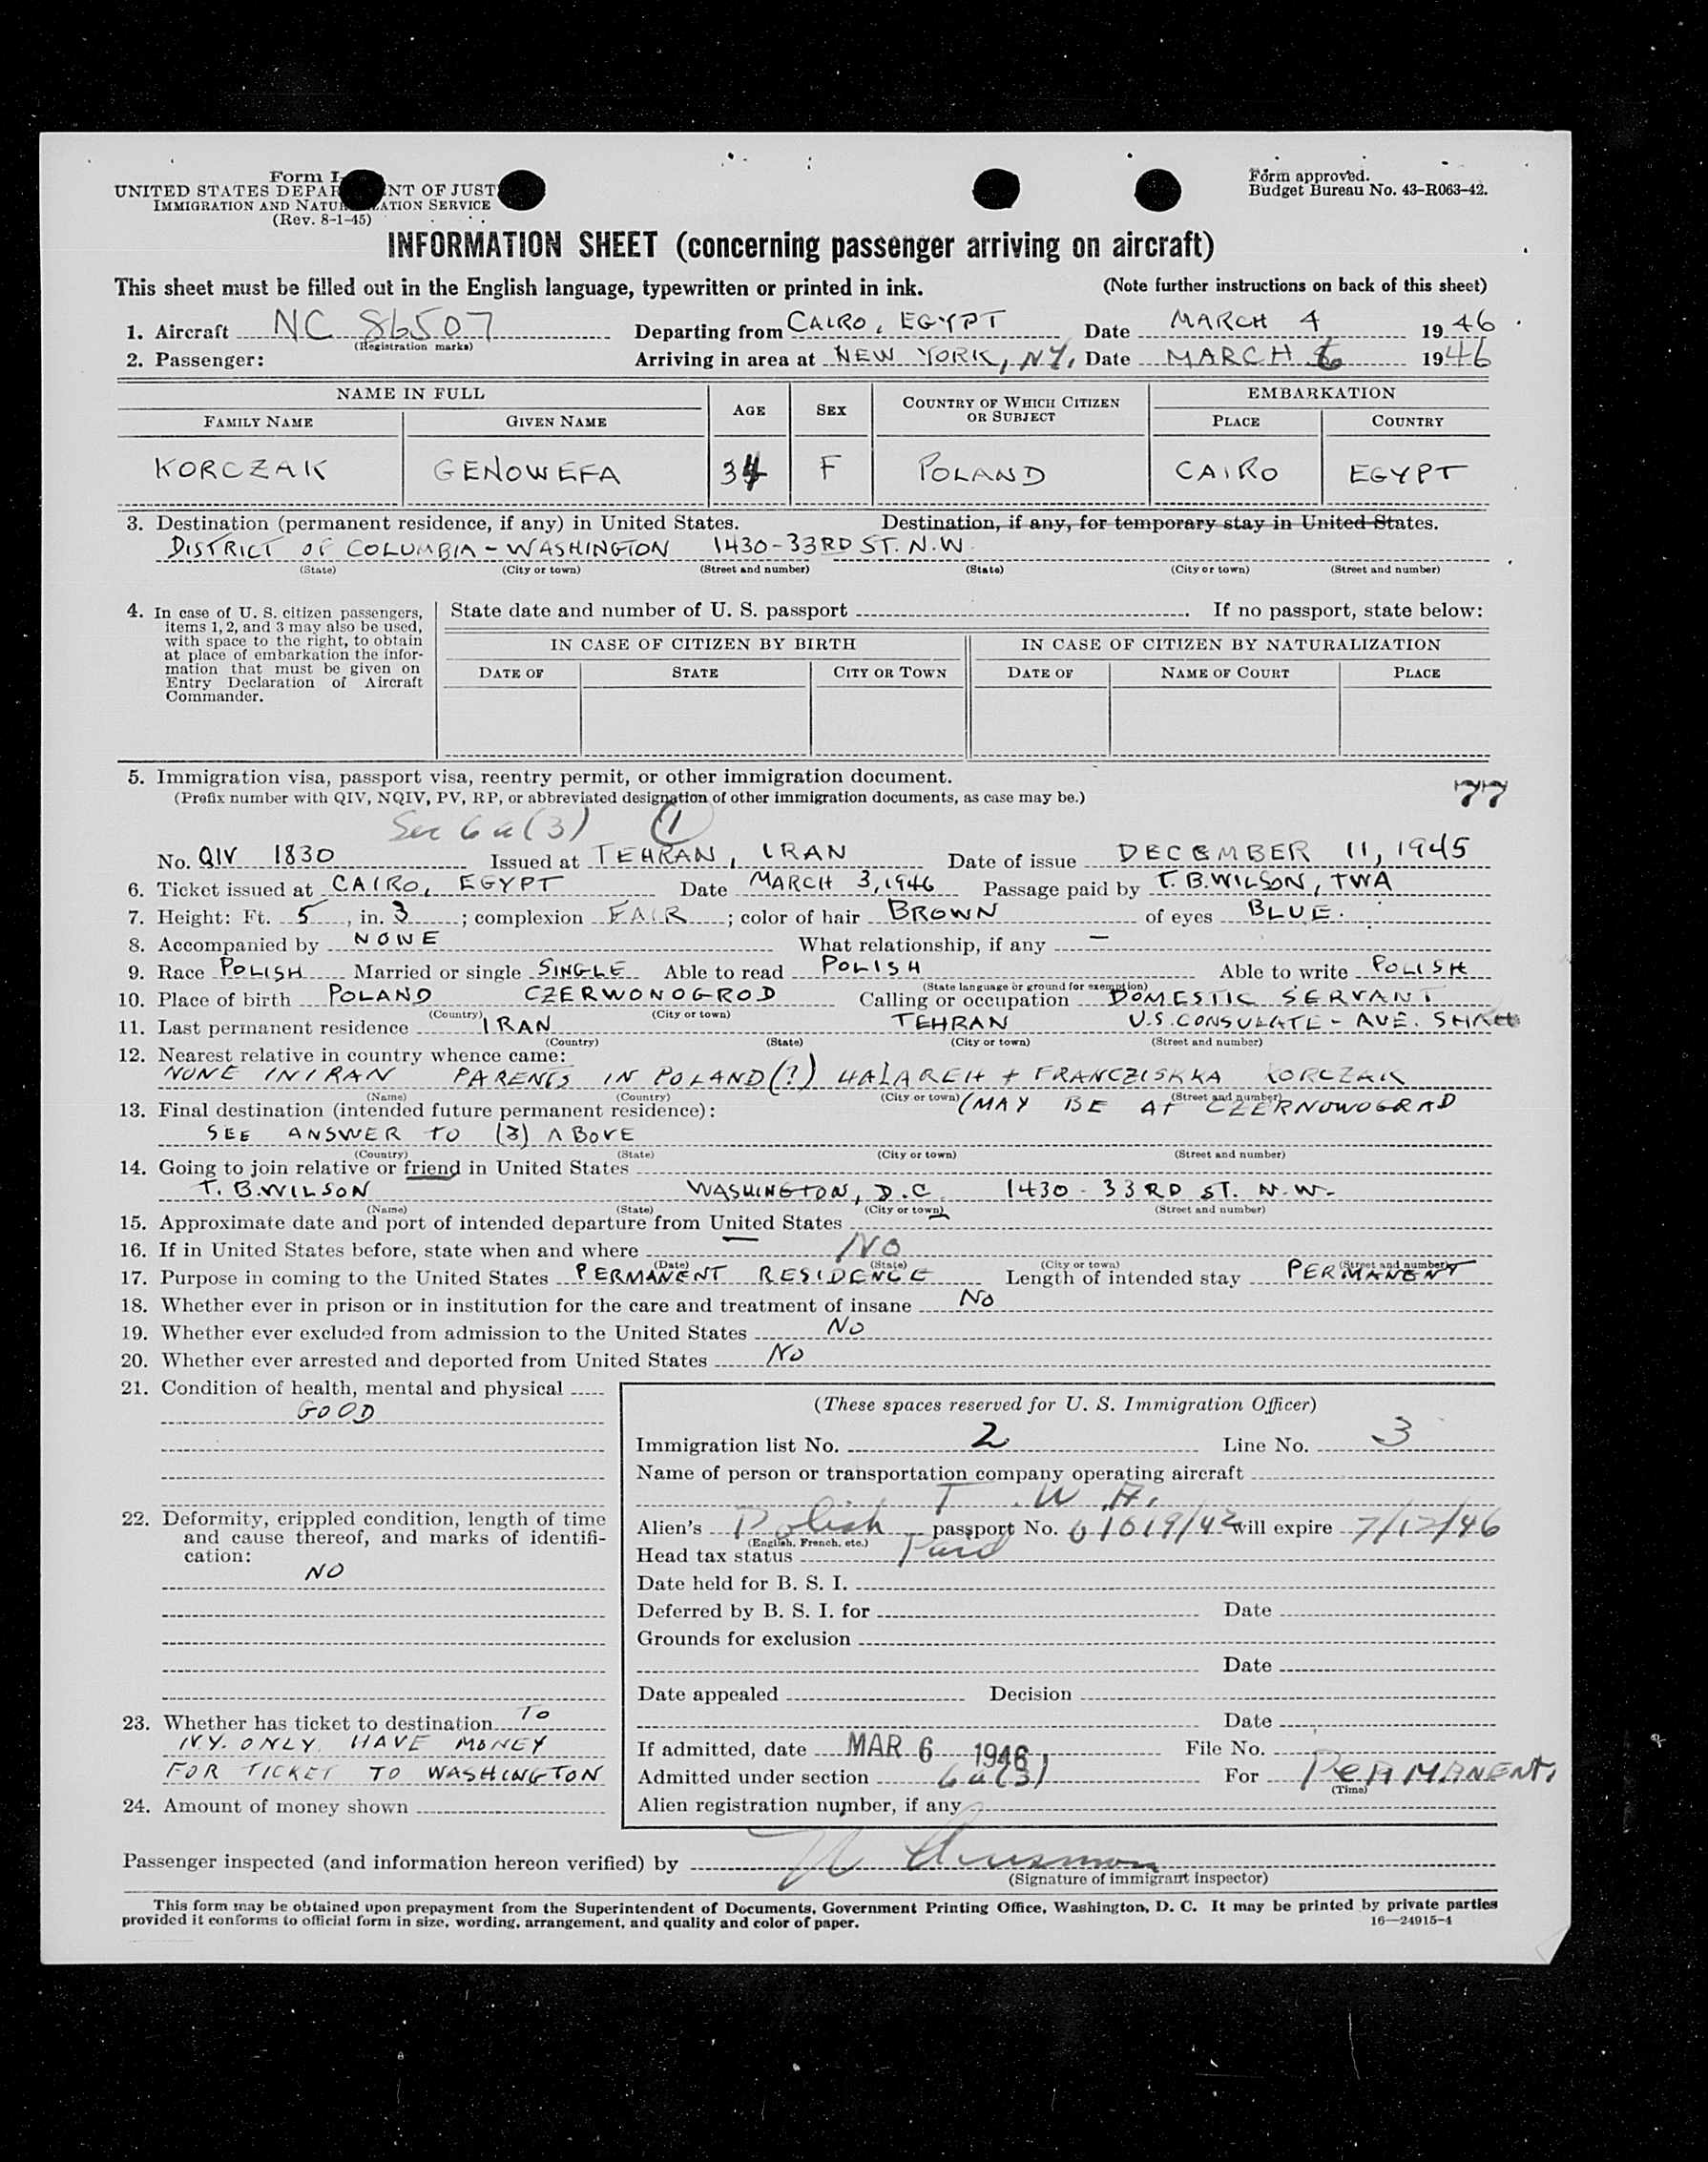 Form I-
UNITED STATES DEPAR NT OF JUST
IMMIGRATION AND NATU ATION SERVICE
(Rev. 8-1-45)
Form approved.
Budget Bureau No. 43-R063-42.
INFORMATION SHEET (concerning passenger arriving on aircraft)
This sheet must be filled out in the English language, typewritten or printed in ink. (Note further instructions on back of this sheet)
1. Aircraft NC 86507 Departing from CAIRO, EGYPT Date MARCH 4 1946
(Registration marks)
2. Passenger: Arriving in area at NEW YORK, NY, Date MARCH 6 1946
NAME IN FULL AGE SEX COUNTRY OF WHICH CITIZEN OR SUBJECT EMBARKATION
FAMILY NAME GIVEN NAME PLACE COUNTRY
KORCZAK GENOWEFA 34 F POLAND CAIRO EGYPT
3. Destination (permanent residence, if any) in United States. Destination, if any, for temporary stay in United States.
DISTRICT OF COLUMBIA - WASHINGTON 1430-33RD ST. N.W.
(State) (City or town) (Street and number) (State) (City or town) (Street and number)
4. In case of U. S. citizen passengers, items 1, 2, and 3 may also be used, with space to the right, to obtain at place of embarkation the information that must be given on Entry Declaration of Aircraft Commander.
State date and number of U. S. passport . If no passport, state below:
IN CASE OF CITIZEN BY BIRTH IN CASE OF CITIZEN BY NATURALIZATION
DATE OF STATE CITY OR TOWN DATE OF NAME OF COURT PLACE
5. Immigration visa, passport visa, reentry permit, or other immigration document.
(Prefix number with QIV, NQIV, PV, RP, or abbreviated designation of other immigration documents, as case may be.)
77
Sec 6a(3) 1
No. QIV 1830 Issued at TEHRAN, IRAN Date of issue DECEMBER 11, 1945
6. Ticket issued at CAIRO, EGYPT Date MARCH 3, 1946 Passage paid by T. B. WILSON, TWA
7. Height: Ft. 5, in. 3; complexion FAIR; color of hair BROWN of eyes BLUE.
8. Accompanied by NONE What relationship, if any —
9. Race POLISH Married or single SINGLE Able to read POLISH Able to write POLISH
(State language or ground for exemption)
10. Place of birth POLAND CZERWONOGROD Calling or occupation DOMESTIC SERVANT
(Country) (City or town)
11. Last permanent residence IRAN TEHRAN U.S. CONSULATE - AVE. SHAH
(Country) (State) (City or town) (Street and number)
12. Nearest relative in country whence came:
NONE IN IRAN PARENTS IN POLAND(?) + FRANCZISKKA KORCZAK
(Name) (Country) (City or town) (Street and number)
(MAY BE AT CZERNOWOGRAD
13. Final destination (intended future permanent residence):
SEE ANSWER TO (3) ABOVE
(Country) (State) (City or town) (Street and number)
14. Going to join relative or friend in United States
T. B. WILSON WASHINGTON, D.C. 1430-33RD ST. N.W.
(Name) (State) (City or town) (Street and number)
15. Approximate date and port of intended departure from United States —
16. If in United States before, state when and where NO
(Date) (State) (City or town) (Street and number)
17. Purpose in coming to the United States PERMANENT RESIDENCE Length of intended stay PERMANENT
18. Whether ever in prison or in institution for the care and treatment of insane NO
19. Whether ever excluded from admission to the United States NO
20. Whether ever arrested and deported from United States NO
21. Condition of health, mental and physical
GOOD
22. Deformity, crippled condition, length of time and cause thereof, and marks of identification:
NO
23. Whether has ticket to destination TO
N.Y. ONLY. HAVE MONEY
FOR TICKET TO WASHINGTON
24. Amount of money shown
(These spaces reserved for U. S. Immigration Officer)
Immigration list No. 2 Line No. 3
Name of person or transportation company operating aircraft
T.W.A.
Alien's Polish passport No. 61619/42 will expire 7/12/46
(English, French, etc.)
Head tax status Paid
Date held for B. S. I.
Deferred by B. S. I. for Date
Grounds for exclusion
Date
Date appealed Decision
Date
If admitted, date MAR 6 1946 File No.
Admitted under section 6a(3) For PERMANENT.
(Time)
Alien registration number, if any
Passenger inspected (and information hereon verified) by
(Signature of immigrant inspector)
This form may be obtained upon prepayment from the Superintendent of Documents, Government Printing Office, Washington, D. C. It may be printed by private parties
provided it conforms to official form in size, wording, arrangement, and quality and color of paper. 16—24915-1